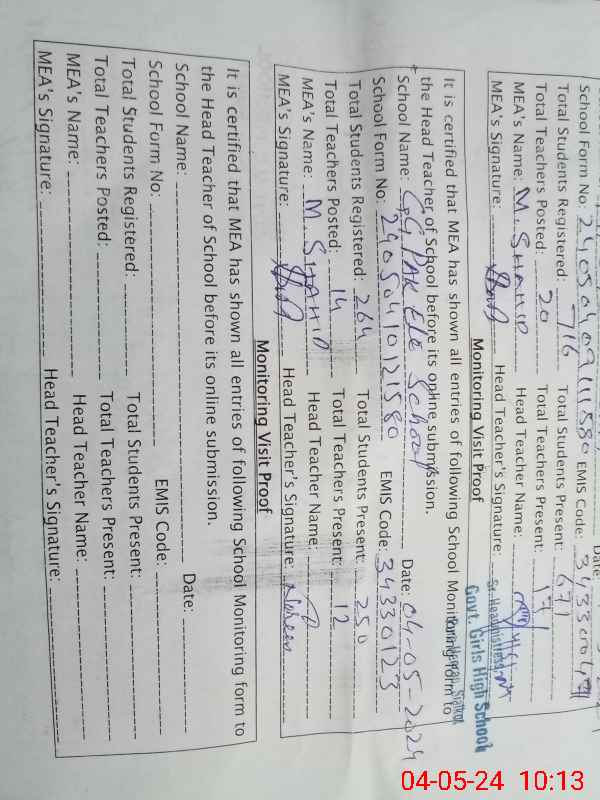 School Form No: 240504091111580 EMIS Code:
Total Students Registered: 716 Total Students Present: 671
Total Teachers Posted: 20 Total Teachers Present: 17
MEA's Name: M. SHAHID Head Teacher Name:
MEA's Signature: Head Teacher's Signature:
Sr. Headmistress
Govt. Girls High School
Monitoring Visit Proof
It is certified that MEA has shown all entries of following School Monitoring form to
the Head Teacher of School before its online submission.
School Name: School Date: 04-05-2024
School Form No: 24050410121580 EMIS Code: 34330123
Total Students Registered: 264 Total Students Present: 250
Total Teachers Posted: 14 Total Teachers Present: 12
MEA's Name: M. SHAHID Head Teacher Name:
MEA's Signature: Head Teacher's Signature:
Monitoring Visit Proof
It is certified that MEA has shown all entries of following School Monitoring form to
the Head Teacher of School before its online submission.
School Name: Date:
School Form No: EMIS Code:
Total Students Registered: Total Students Present:
Total Teachers Posted: Total Teachers Present:
MEA's Name: Head Teacher Name:
MEA's Signature: Head Teacher's Signature:
04-05-24 10:13